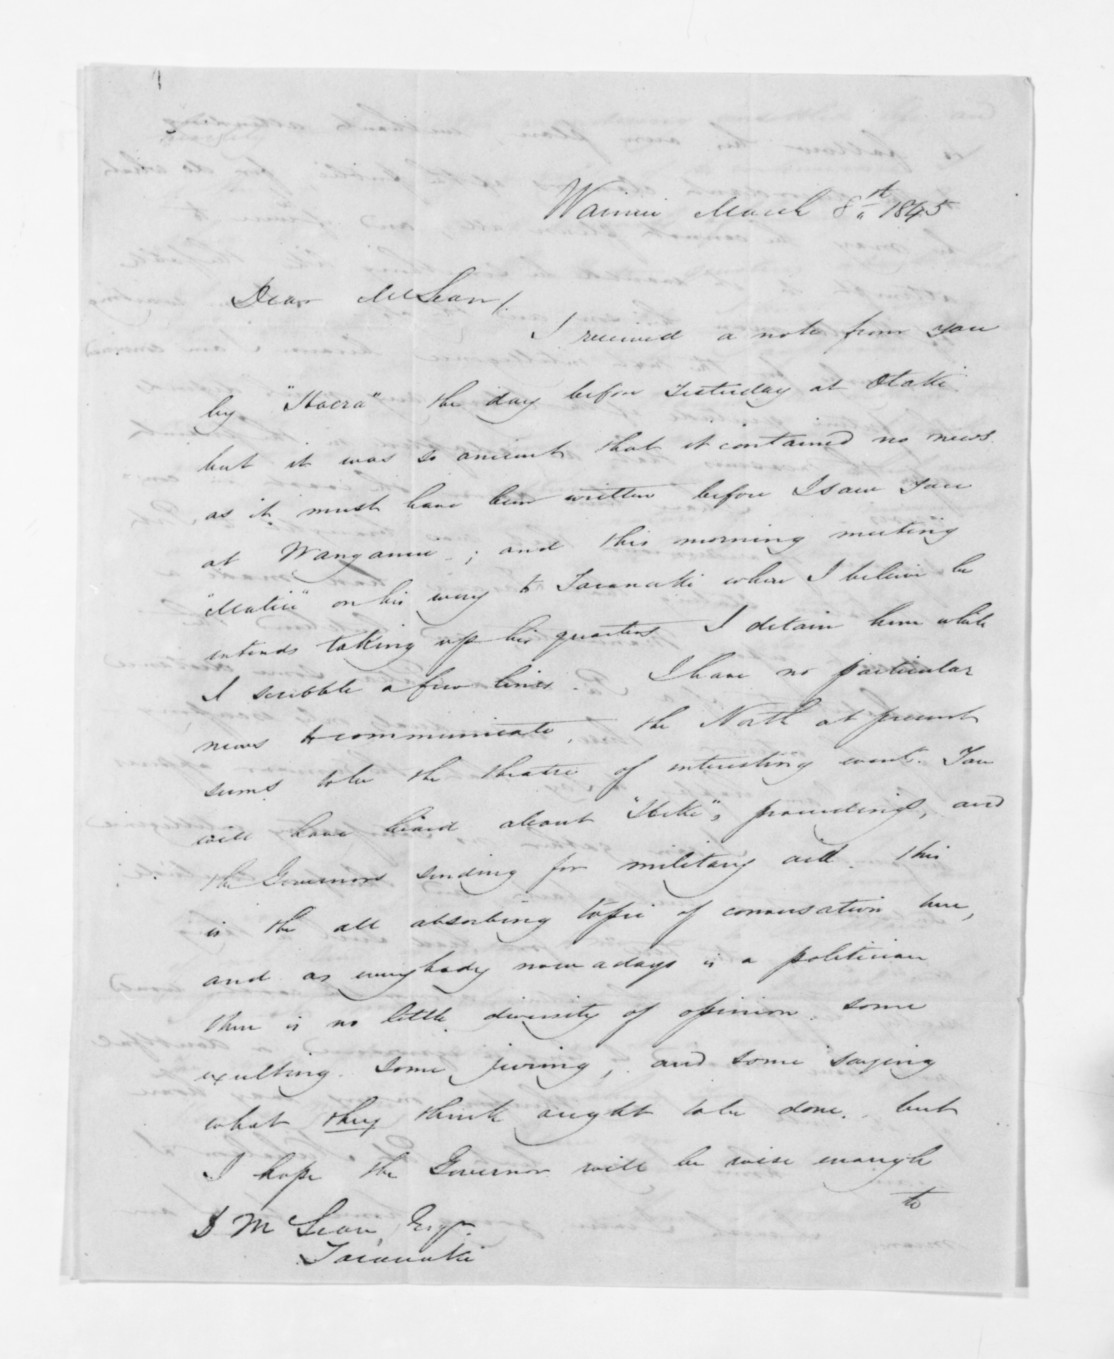 Wainui March 8th 1845
Dear McLean/.
I received a note from you
by "Hoera" the day before Yesterday at Otaki
but it was so ancient that it contained no news
as it must have been written before I saw you
at Wanganui ; and this morning meeting
"Matiu" on his way to Taranaki where I believe he
intends taking up his quarters I detain him while
I scribble a few lines. I have no particular
news to communicate, the North at present
seems to be the theatre of interesting event. You
will have heard about "Heke"s proceedings, and
the Governors sending for military aid. this
is the all absorbing topic of conversation here,
and as everybody now a days is a politician
there is no little diversity of opinion. some
exulting. some jeering, and some saying
what they think aught to be done. but
I hope the Governor will be wise enough
to
D McLean, Esqr.
Taranaki